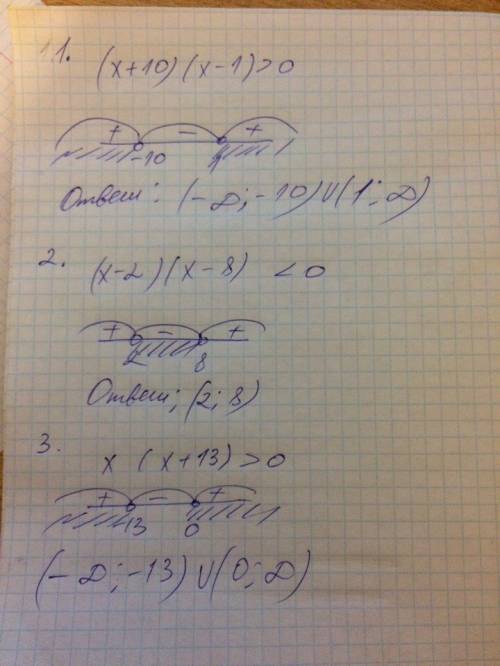 1.
(x+10)(x-1)>0
+ - +
-10 1
Ответ: (-∞; -10)∪(1; ∞)
2.
(x-2)(x-8) <0
+ - +
2 8
Ответ; (2; 8)
3.
x (x+13)>0
+ - +
-13 0
(-∞; -13)∪(0; ∞)